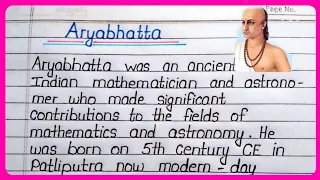 Page No.
Aryabhatta
Aryabhatta was an ancient
Indian mathematician and astrono-
mer who made significant
contributions to the fields of
mathematics and astronomy. He
was born on 5th century CE in
Patliputra now modern-day